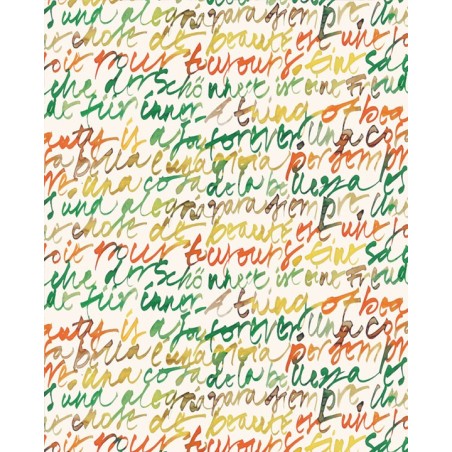 s una alegra para siempr. Un
r chose de beaute est une jo
oit pour toujours Eine Sac
che der Schönheit ist eine Freud
de für immer A thing of bea
auty is a joy forever Una cosa
sa bella è una gioia per sempr
Una cosa de la belleza es
s una alegra para siempr. Un
oit pour toujours Eine Sac
che der Schönheit ist eine Freud
de für immer A thing of bea
auty is a joy forever Una cosa
sa bella è una gioia per sempr
Una cosa de la belleza es
s una alegra para siempr. Un
r chose de beaute est une jo
oit pour toujours Eine Sac